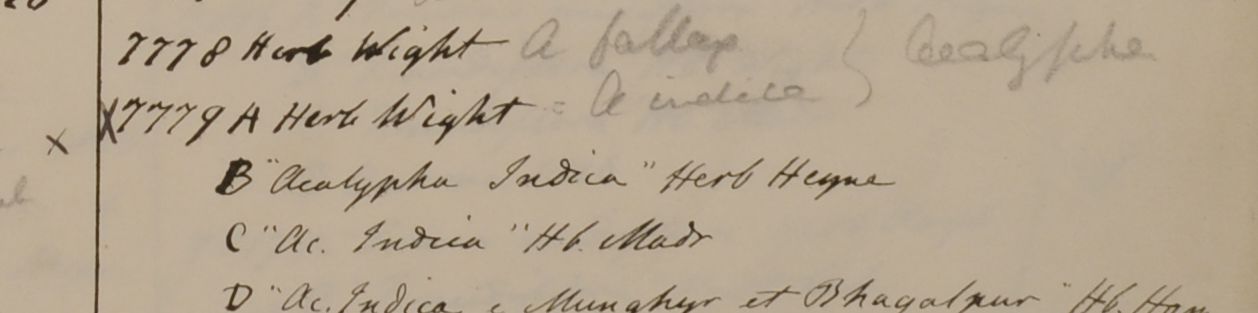 7778 Herb Wight A fallax } Acalypha
X 7779 A Herb Wight = A indica
x
B "Acalypha Indica" Herb Heyne
C "Ac. Indica" Hb. Madr
D "Ac. Indica e Munghyr et Bhagalpur" Hb. Ham